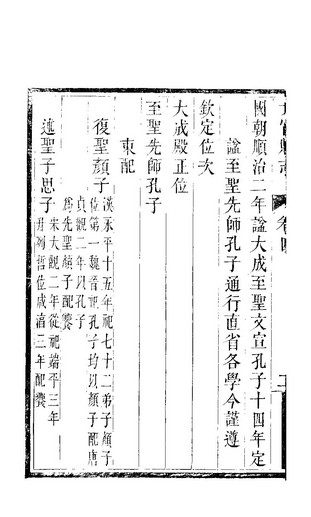 國朝順治二年謚大成至聖文宣孔子十四年定
謚至聖先師孔子通行直省各學今謹遵
欽定位次
大成殿正位
至聖先師孔子
東配
復聖顏子
漢永平十五年祀七十二弟子顏子
位第一魏晉祀孔子均以顏子配唐
貞觀二年以孔子
為先聖顏子配饗
述聖子思子
宋大觀二年從祀端平三年
升列哲位咸淳三年配饗